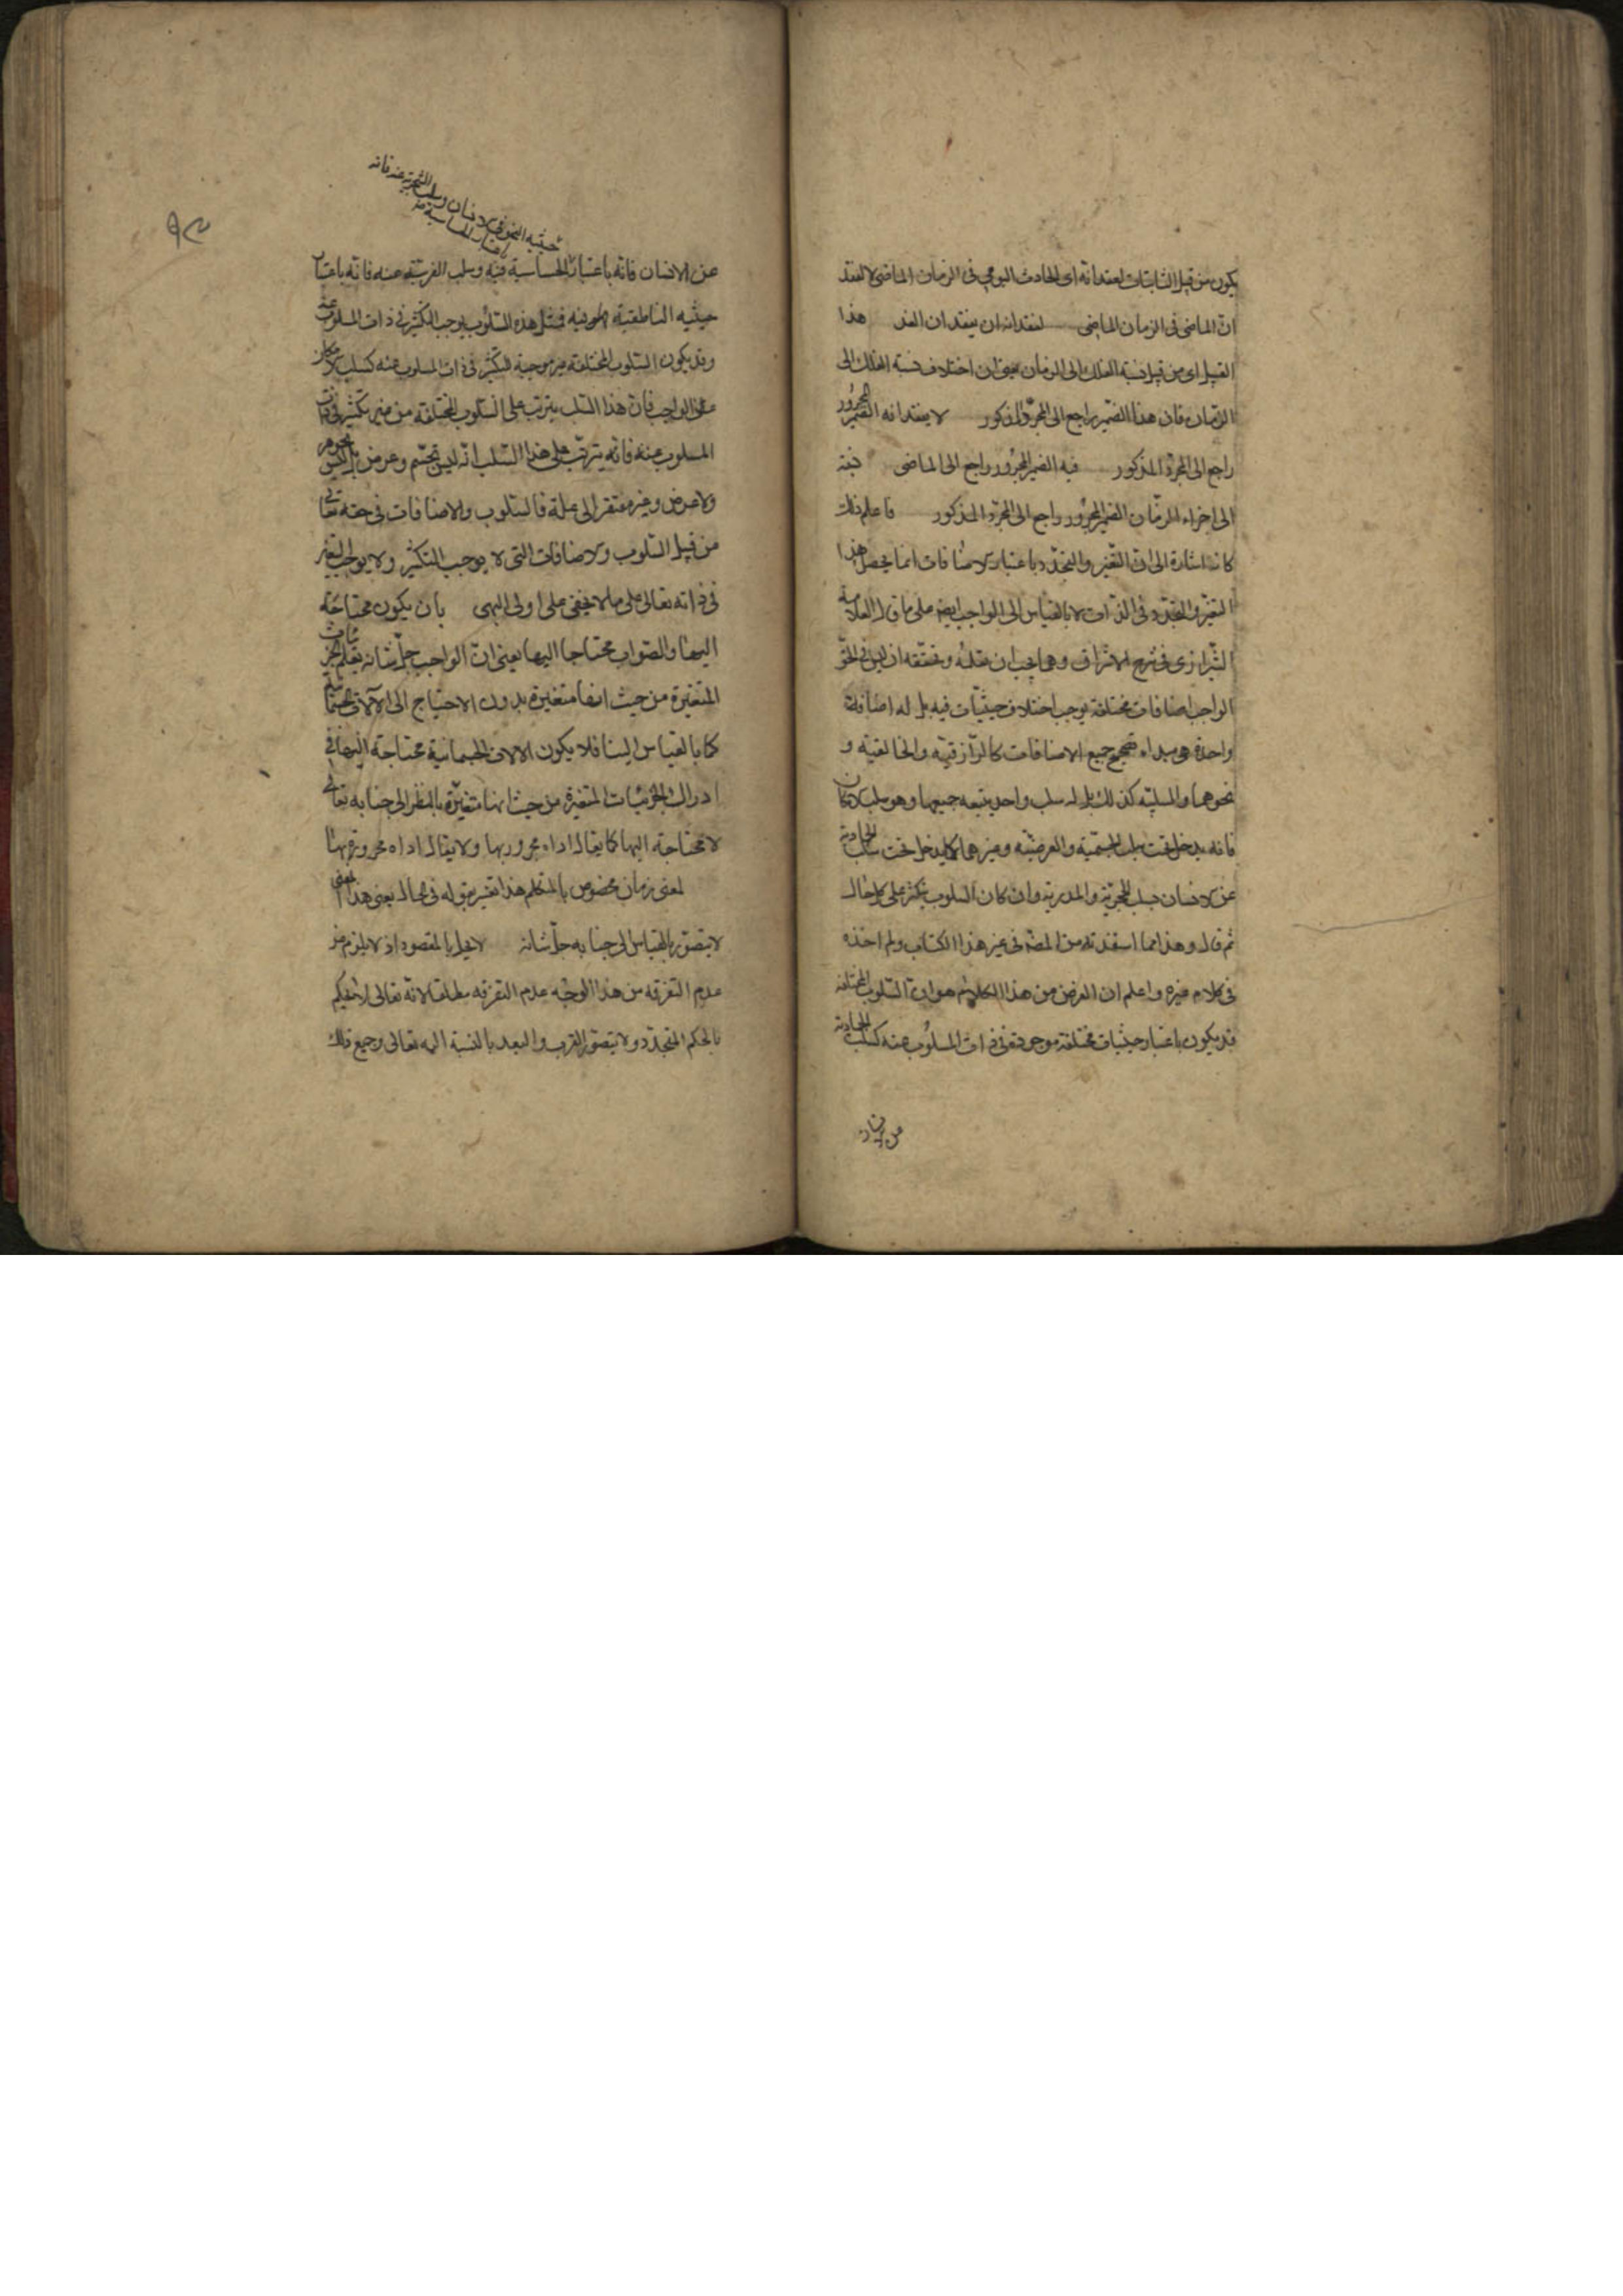 يكون من قبيل الثابتات لفقدانه اى الحادث اليومى فى الزمان الماضى لا لفقد
ان الماضى فى الزمان الماضى لفقدانه ان يفقدان الغد هذا
القبيل اى من قبيل نسبة الفلك الى الزمان يعنى ان اختلاف نسبة الفلك الى
الزمان فان هذا الضمير راجع الى المجرّد المذكور لا يفقدانه الضمير المجرور
راجع الى المجرّد المذكور فيه الضمير المجرور راجع الى الماضى نسبة
الى اجزاء الزمان الضمير المجرور راجع الى المجرّد المذكور فاعلم ذلك
كانه اشارة الى ان التغيّر والتجدّد باعتبار الاضافات انما يحصل هذا
التغيّر والتجدّد فى الذات لا بالقياس الى الواجب ايضا على ما قال العلامة
الشيرازى فى شرح الاشراق وهى يجب ان نعقله ونحقّقه ان ليس فى الحقّ
الواجب اضافات مختلفة يوجب اختلاف حيثيّات فيه بل له اضافة
واحدة هى مبداء تصحّح جميع الاضافات كالرّازقيّة والخالقيّة و
نحوهما والسلبيّة كذلك بل له سلب واحد يتبعه جميعها وهو سلب الامكان
فانه يدخل تحت سلب الجسميّة والعرضيّة وغيرهما كما يدخل تحت سلب الجمادية
عن الانسان سلب الحجريّة والمدريّة وان كان السلوب يتكثّر على كل حال
ثم قال وهذا مما استفدته من المصّ فى غير هذا الكتاب ولم اخذه
فى كلام غيره واعلم ان الغرض من هذا الكلام هو ان السلوب المختلفة
قد يكون باعتبار حيثيات مختلفة موجودة فى ذات المسلوب عنه كسلب الجمادية
عن الانسان
حيثية النمو فى الانسان وسلب الشجرية عنه فانه
باعتبار الحساسية فيه
عن الانسان فانه باعتبار الحساسية فيه وسلب الفرسيّة عنه فانّه باعتبار
حيثيه الناطقية فيه فمثل هذه السّلوب يوجب التكثّر فى ذات المسلوب عنه
وقد يكون السّلوب المختلفة غير موجبة للتكثّر فى ذات المسلوب عنه كسلب الامكان
عن الواجب فان هذا السّلب يترتب على السلوب المختلفة من غير تكثّر فى ذات
المسلوب عنه فانه يترتّب على هذا السّلب انّه ليس بجسم وعرض وليس بجوهر
ولا عرض وغير مفتقر الى علة فالسلوب والاضافات فى حقه تعالى
من قبيل السّلوب والاضافات التى لا يوجب التكثّر ولا يوجب التغيّر
فى ذاته تعالى على ما لا يخفى على اولى النهى بان يكون محتاجة
اليها والصّواب محتاجا اليها يعنى انّ الواجب جلّ شانه يعلم الجزئيات
المتغيّرة من حيث انها متغيّرة بدون الاحتياج الى الآلات الجسمانية
كما بالقياس الينا فلا يكون الالات الجسمانية محتاجة اليها فى
ادراك الجزئيات المتغيّرة من حيث انها متغيّرة بالنظر الى جنابه تعالى
لا محتاجة اليها كما يقال اداه مجرور بها ولا يقال اداه مجرورة بها
لمعنى زمان مخصوص بالمتكلم هذا تفسير بقوله فى الحال يعنى هذا المعنى
لا يتصوّر بالقياس الى جنابه جلّ شانه لا يخل بالمقصود اذ لا يلزم من
عدم التفرقة من هذا الوجه عدم التفرقة مطلقا لانّه تعالى لا يحكم
بالحكم المتجدّد ولا يتصوّر القرب والبعد بالنسبة اليه تعالى وجميع ذلك